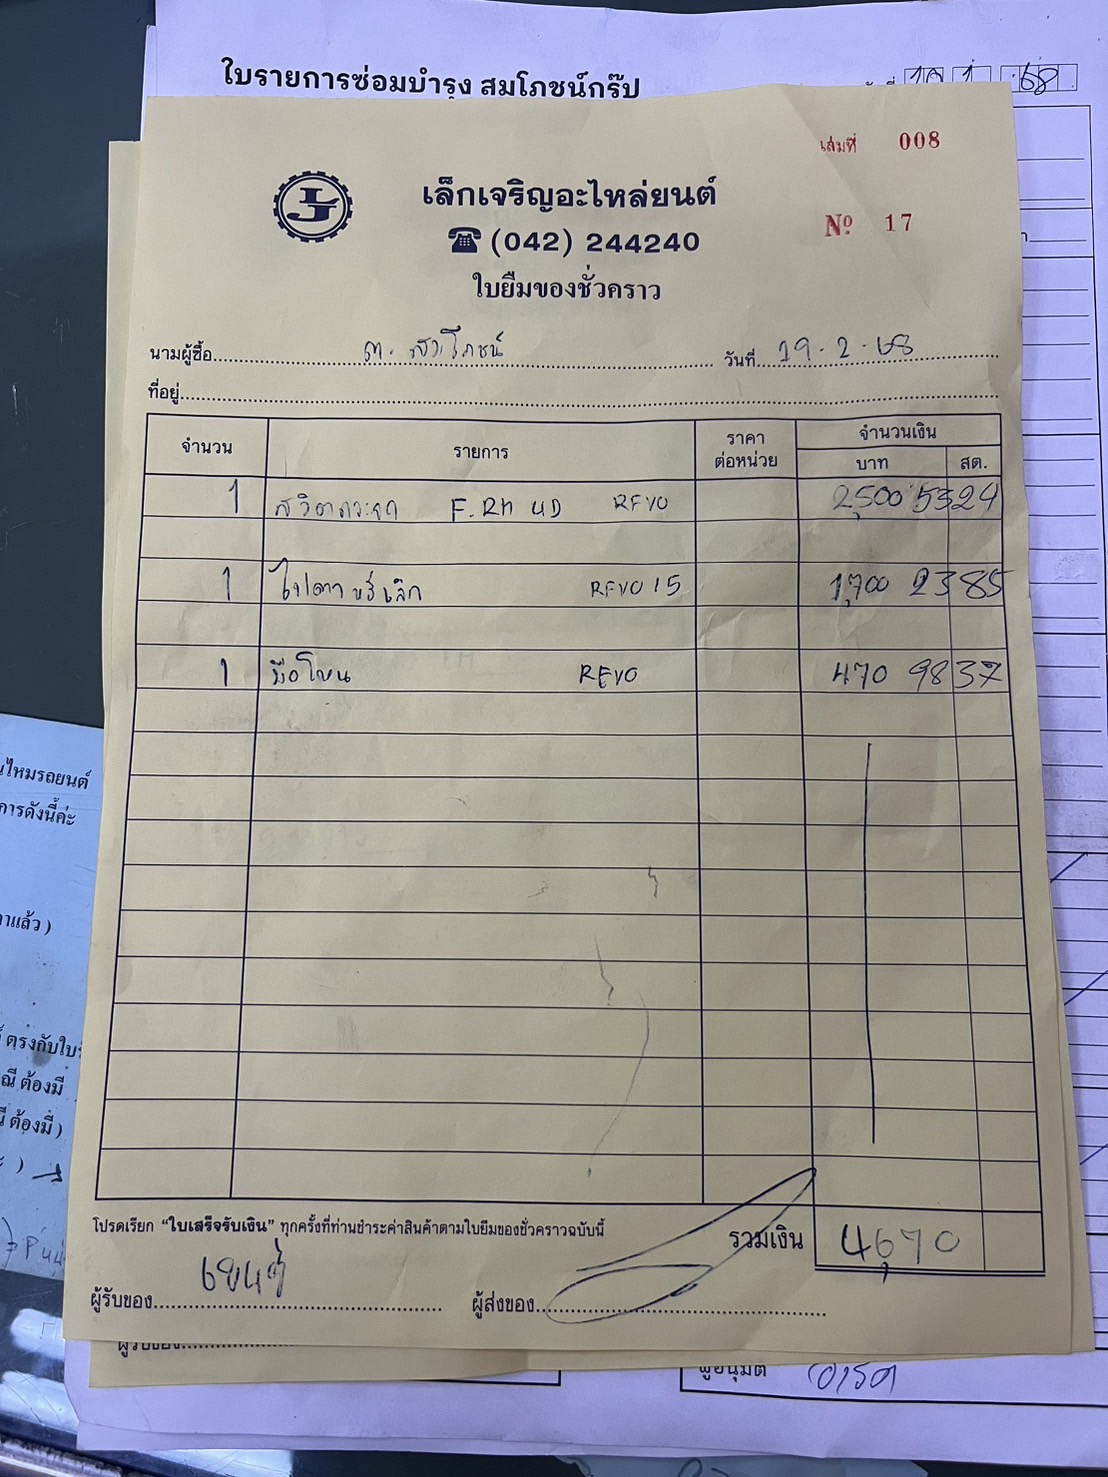 ใบรายการซ่อมบำรุง สมโภชน์กรุ๊ป
เล่มที่ 008
เล็กเจริญอะไหล่ยนต์
Nº 17
(042) 244240
ใบยืมของชั่วคราว
นามผู้ซื้อ วันที่ 19-2-68
ที่อยู่
จำนวน รายการ ราคาต่อหน่วย จำนวนเงิน
บาท สต.
1 F.Rh UD REVO 2,500 5324
1 REVO 15 1,700 2385
1 มือโหน REVO 470 9837
โปรดเรียก “ใบเสร็จรับเงิน” ทุกครั้งที่ท่านชำระค่าสินค้าตามใบยืมของชั่วคราวฉบับนี้
รวมเงิน 4,670
ผู้รับของ ผู้ส่งของ
ผู้รับของ
ผู้อนุมัติ
นไหมรถยนต์
การดังนี้ค่ะ
าแล้ว )
ตรงกับใบ
ณี ต้องมี
ต้องมี )